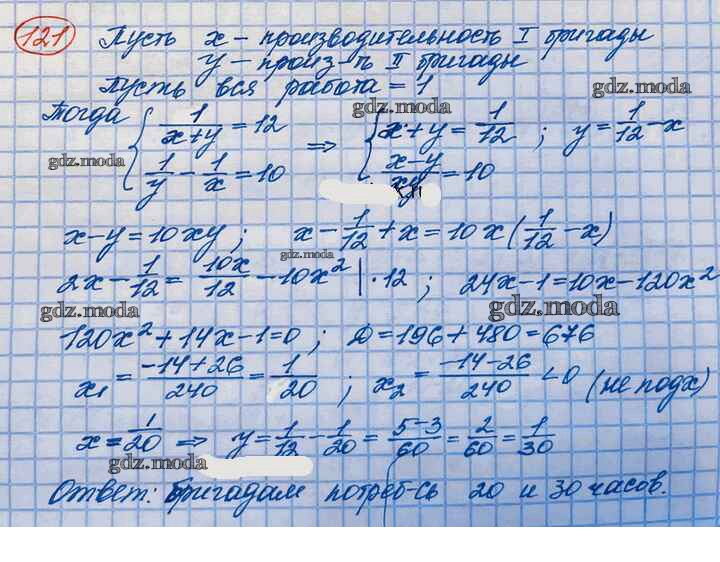 121 Пусть x - производительность I бригады
y - произ-ть II бригады
Пусть вся работа = 1
gdz.moda
Тогда { 1/(x+y) = 12 ⇒ { x+y = 1/12 ; y = 1/12 - x
gdz.moda
gdz.moda
gdz.moda
1/y - 1/x = 10 (x-y)/xy = 10
x-y = 10xy ; x - 1/12 + x = 10x(1/12 - x)
gdz.moda
2x - 1/12 = 10x/12 - 10x² | · 12 ; 24x-1=10x-120x²
gdz.moda
gdz.moda
120x²+14x-1=0 ; D=196+480=676
x₁ = (-14+26)/240 = 1/20 ; x₂ = (-14-26)/240 <0 (не подх)
gdz.moda
x = 1/20 ⇒ y = 1/12 - 1/20 = (5-3)/60 = 2/60 = 1/30
gdz.moda
gdz.moda
Ответ: бригадам потреб-сь 20 и 30 часов.